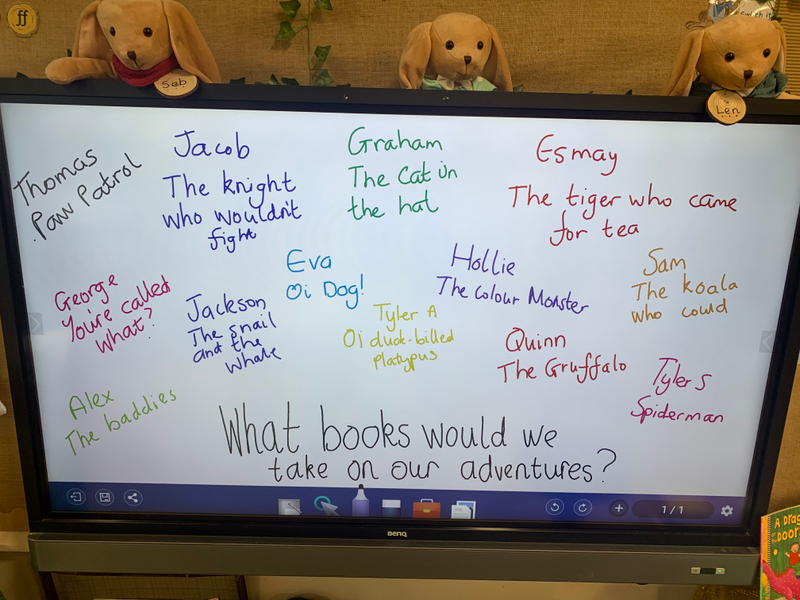 ff
Seb
Len
Thomas
Paw Patrol
Jacob
The knight
who wouldn't
fight
Graham
The Cat in
the hat
Esmay
The tiger who came
for tea
George
You're called
What?
Jackson
The snail
and the
whale
Eva
Oi Dog!
Tyler A
Oi duck-billed
platypus
Hollie
The Colour Monster
Quinn
The Gruffalo
Sam
The koala
who could
Tyler S
Spiderman
Alex
The baddies
What books would we
take on our adventures?
1/1
BenQ